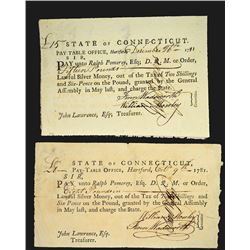 £15 STATE OF CONNECTICUT.
PAY-TABLE OFFICE, Hartford, December 1781
SIR,
PAY unto Ralph Pomeroy, Esq; D. Q. M. or Order,
Fifteen Pounds
Lawful Silver Money, out of the Tax of Two Shillings
and Six-Pence on the Pound, granted by the General
Assembly in May last, and charge the State.
John Lawrance, Esq; Treasurer.
STATE OF CONNECTICUT.
PAY-TABLE OFFICE, Hartford, Oct 9th 1781.
SIR,
PAY unto Ralph Pomeroy, Esq; D. Q. M. or Order,
Pounds
Lawful Silver Money, out of the Tax of Two Shillings
and Six-Pence on the Pound, granted by the General
Assembly in May last, and charge the State.
John Lawrance, Esq; Treasurer.